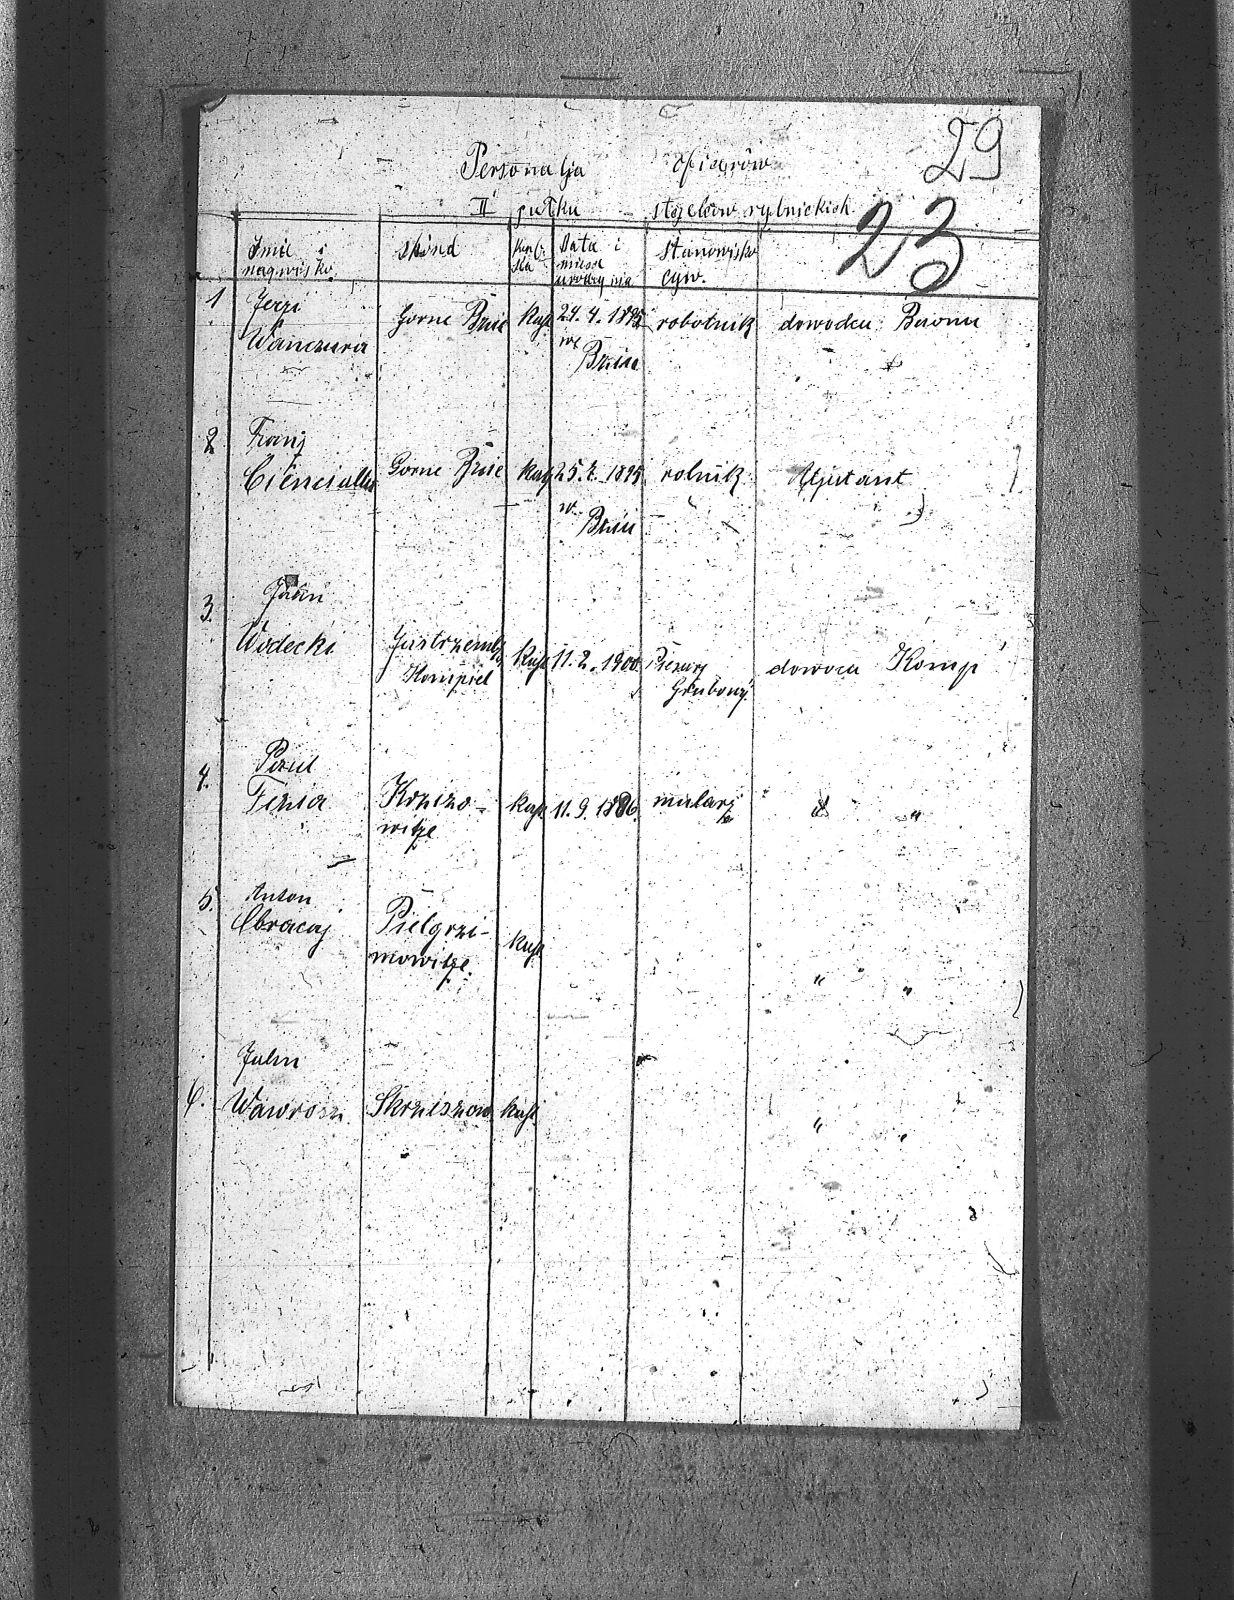 29
Personalja oficerów
II pułku strzelców rybnickich
23
Imię i nazwisko
skąnd
Data i miesc urodzynia
stanowisko cyw.
1 Jerzi Wanczura
Gorne Bzie
Kat
1895
we Bziu
robotnik
dowodca Baonu
2 Franz Ciencialla
Gorne Bzie
kat
1895
w Bziu
rolnik
Atjutant
3. Jaan Wodecki
Jastrzemb Kompiel
Kat
11. 2. 1900
Grubowy
dowoca Komp
4. Paul
Krzizowitze
kat
11. 9. 1886.
malarz
" "
5. Anton Obracaj
Pielgrzimowitze.
kat
" "
6. John Wawrosz
Skrziszow
kat
" "